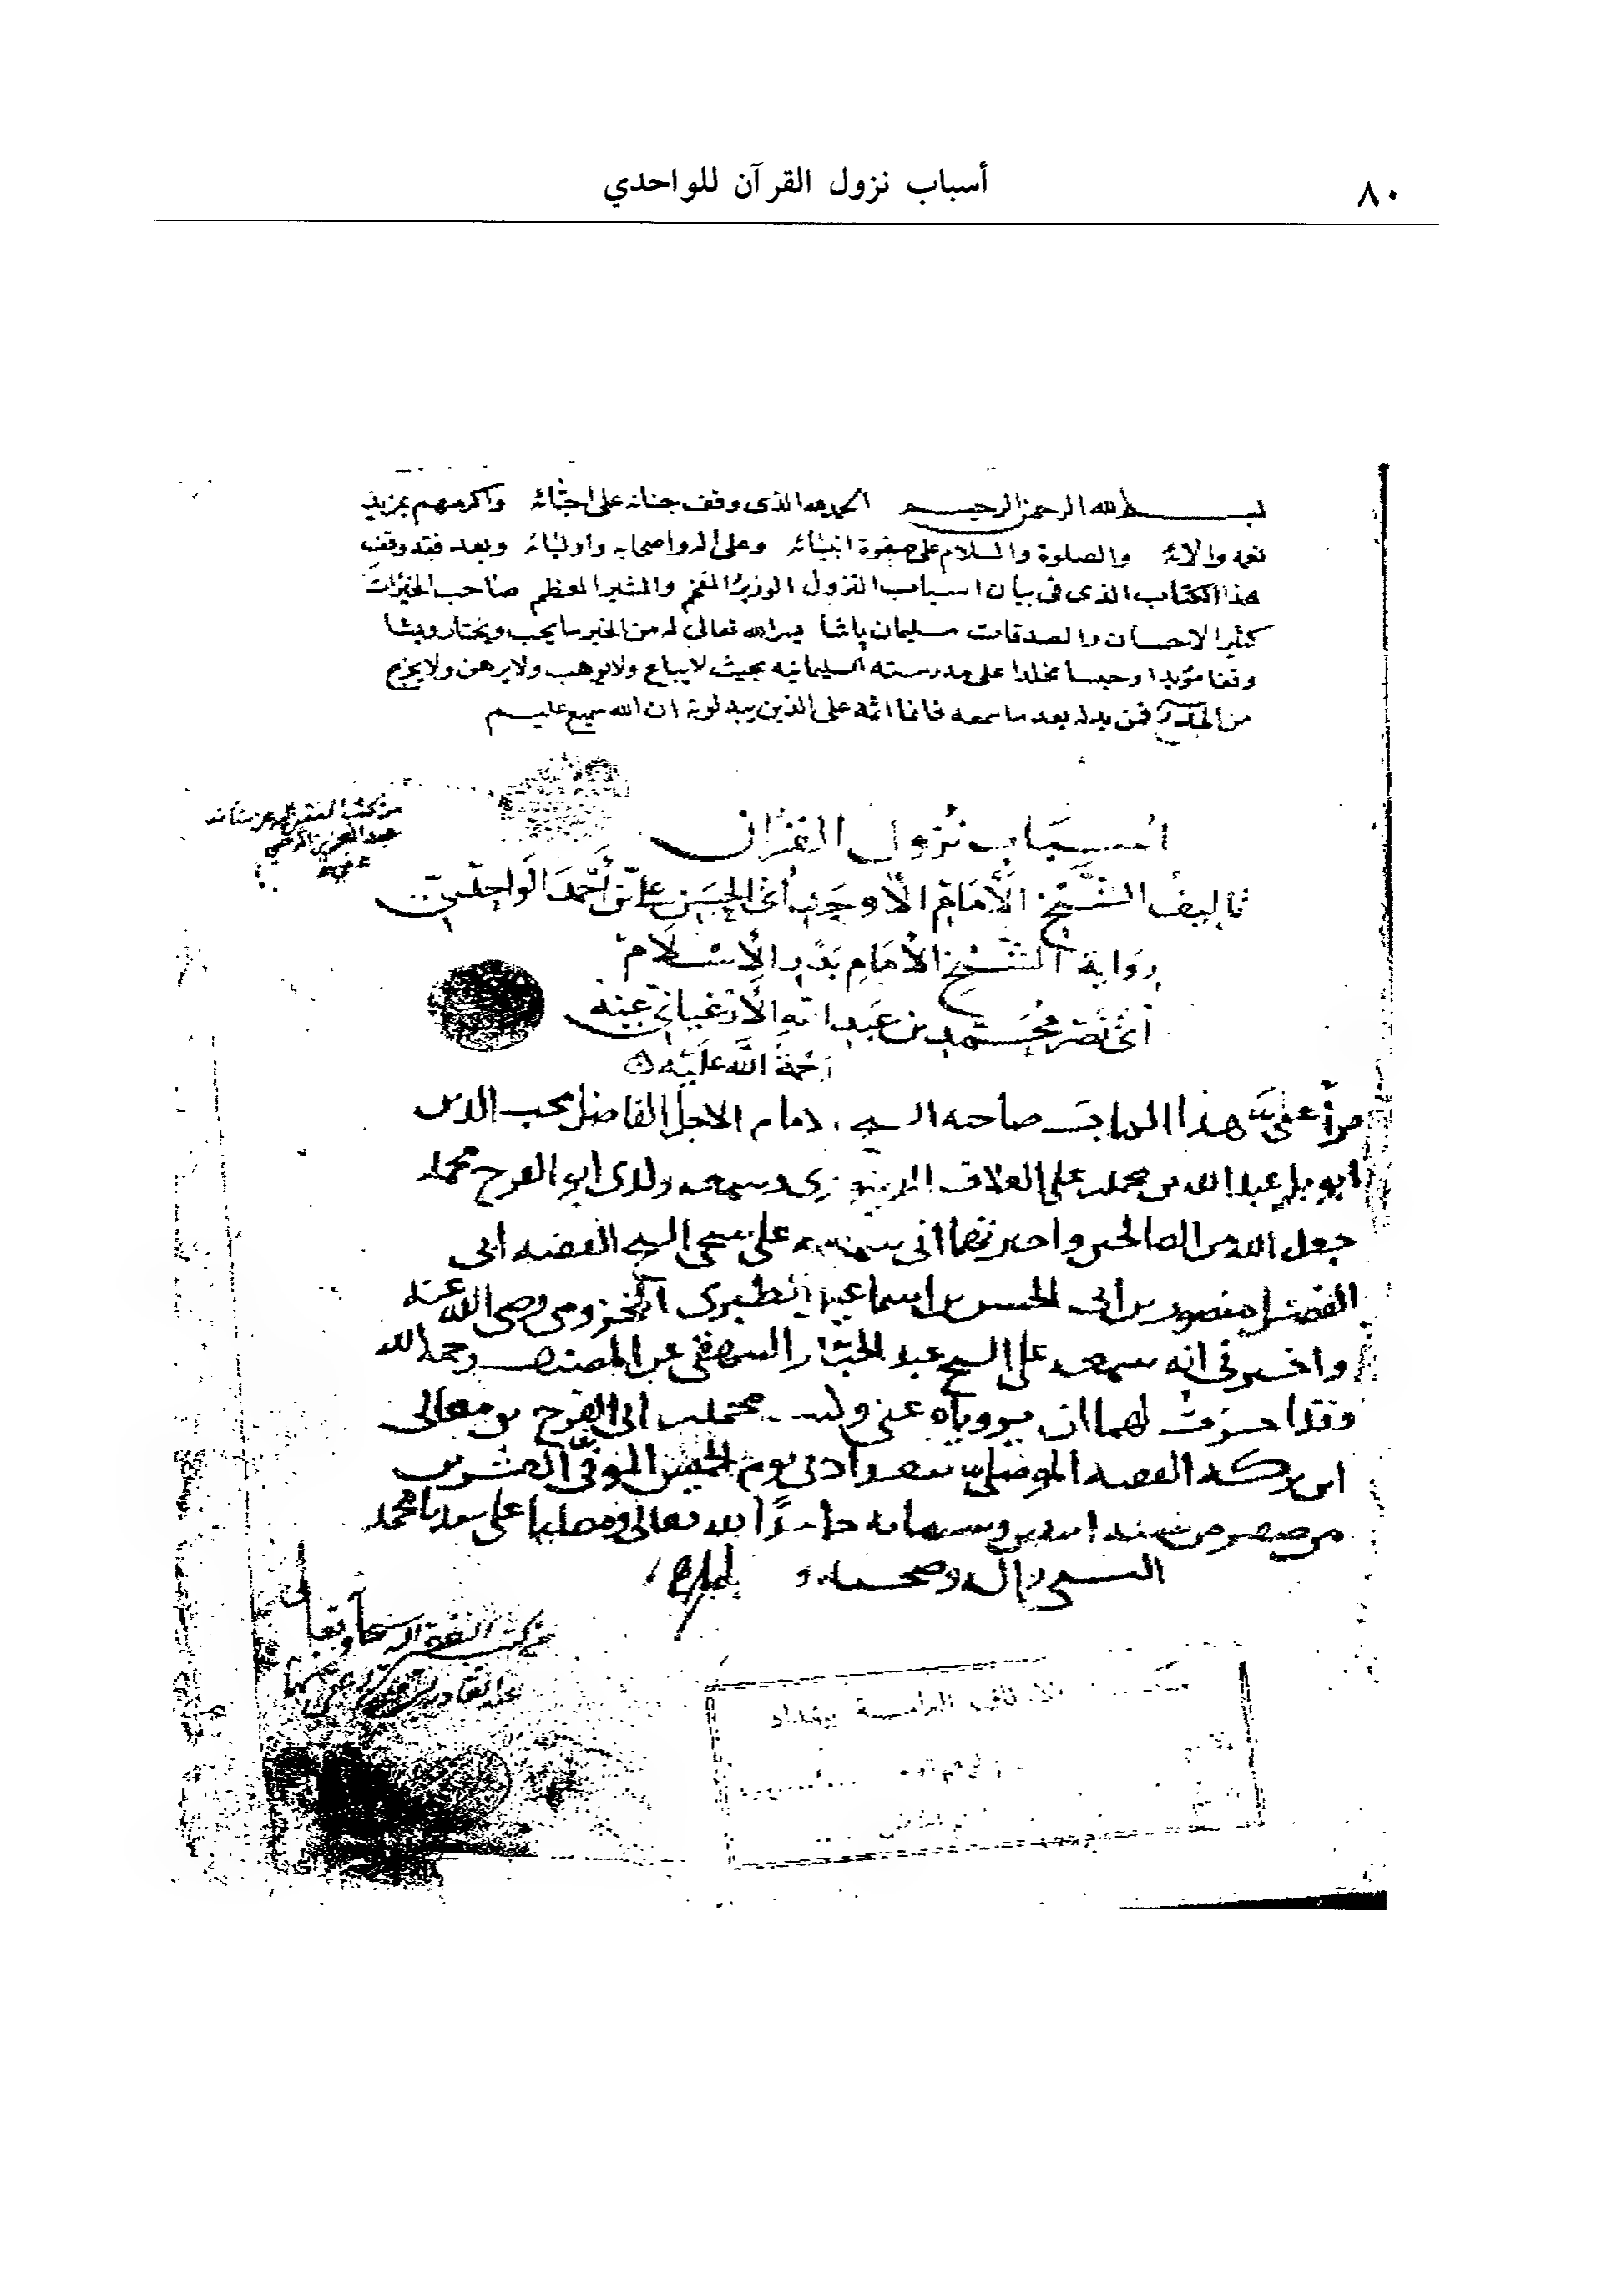 ٨٠
أسباب نزول القرآن للواحدي
بسم الله الرحمن الرحيم الحمد لله الذى وقف جنانه على احبائه واكرمهم بمزيد
نعمه والائه والصلوة والسلام على صفوة انبيائه وعلى اله واصحابه واوليائه وبعد فقد وقف
هذا الكتاب الذى فى بيان اسباب النزول الوزير المفخم والمشير المعظم صاحب الخيرات
كثير الاحسان والصدقات سليمان پاشا يسر الله تعالى له من الخير ما يحب ويختار ويشا
وقفا مؤبدا وحبسا مخلدا على مدرسته السليمانيه بحيث لا يباع ولا يوهب ولا يرهن ولا يخرج
من المدرسة فمن بدله بعد ما سمعه فانما اثمه على الذين يبدلونه ان الله سميع عليم
من كتب الفقير
اسباب نزول القرآن
تاليف الشيخ الامام الاوحد أبى الحسن على بن أحمد الواحدي
رواية الشيخ الامام بدر الاسلام
أبى نصر محمد بن عبد الله الارغيانى عنه
رحمة الله عليه
قرأ على هذا الكتاب صاحبه الشيخ الامام الاجل الفاضل محب الدين
ابو بكر عبد الله بن محمد بن على العلاف الدينورى وسمعه ولدى ابو الفرج محمد
جعله الله من الصالحين واخبرتهما انى سمعته على شيخى الشيخ الفقيه ابى
الفضل منصور بن ابى الحسن بن اسماعيل الطبرى المخزومى رضى الله عنه
واخبرنى انه سمعه على الشيخ عبد الجبار البيهقى عن المصنف رحمه الله
وقد اجزت لهما ان يروياه عنى وكتب محمد بن ابى الفرج بن معالى
ابن بركة الفقيه الموصلى ببغداد فى يوم الخميس الموفى العشرين
من صفر من سنة وستمائة حامدا لله تعالى ومصليا على سيدنا محمد
النبى واله وصحبه و
من كتب الفقير
عبد القادر
الاوقاف العامة ببغداد